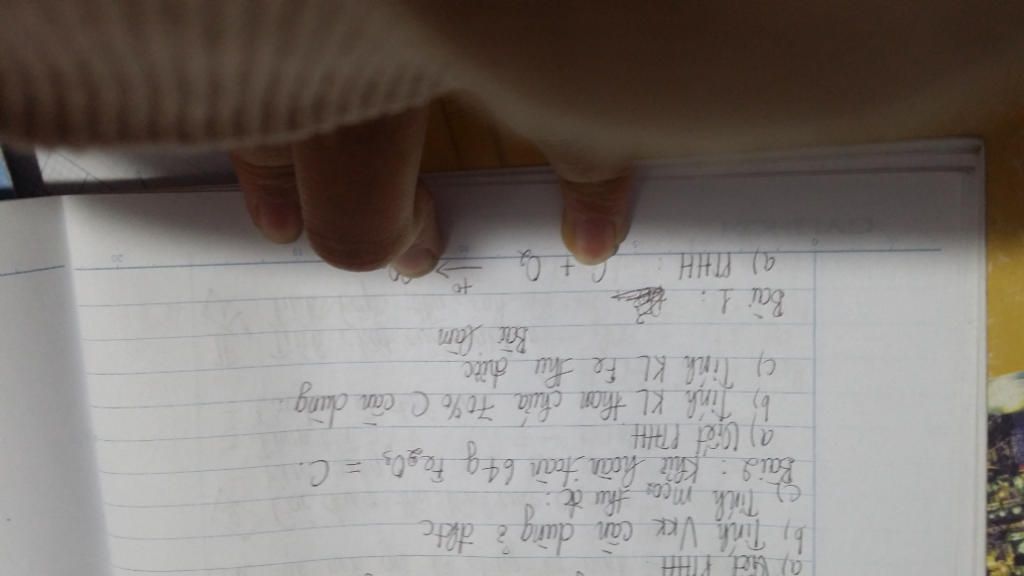 a) Viết PTHH
b) Tính Vkk cần dùng ở đktc
c) Tính mCO2 thu đc:
Bài 2: Khử hoàn toàn 64g Fe2O3 = C.
a) Viết PTHH
b) Tính KL than chứa 70% C cần dùng.
c) Tính KL Fe thu được
Bài làm
Bài 1:
a) PTHH: C + O2 t° →